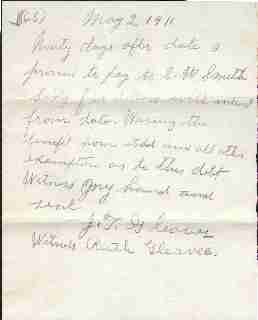 $65) May 2 1911
Ninty days after date I
promis to pay to E. W Smith
Sixty five with intrest
from date. Waving the
benefit home stidd and all other
exemptions as to this debt
Witness my hand and
seal
J. T. Gleaves
Witness Ruth Gleaves.